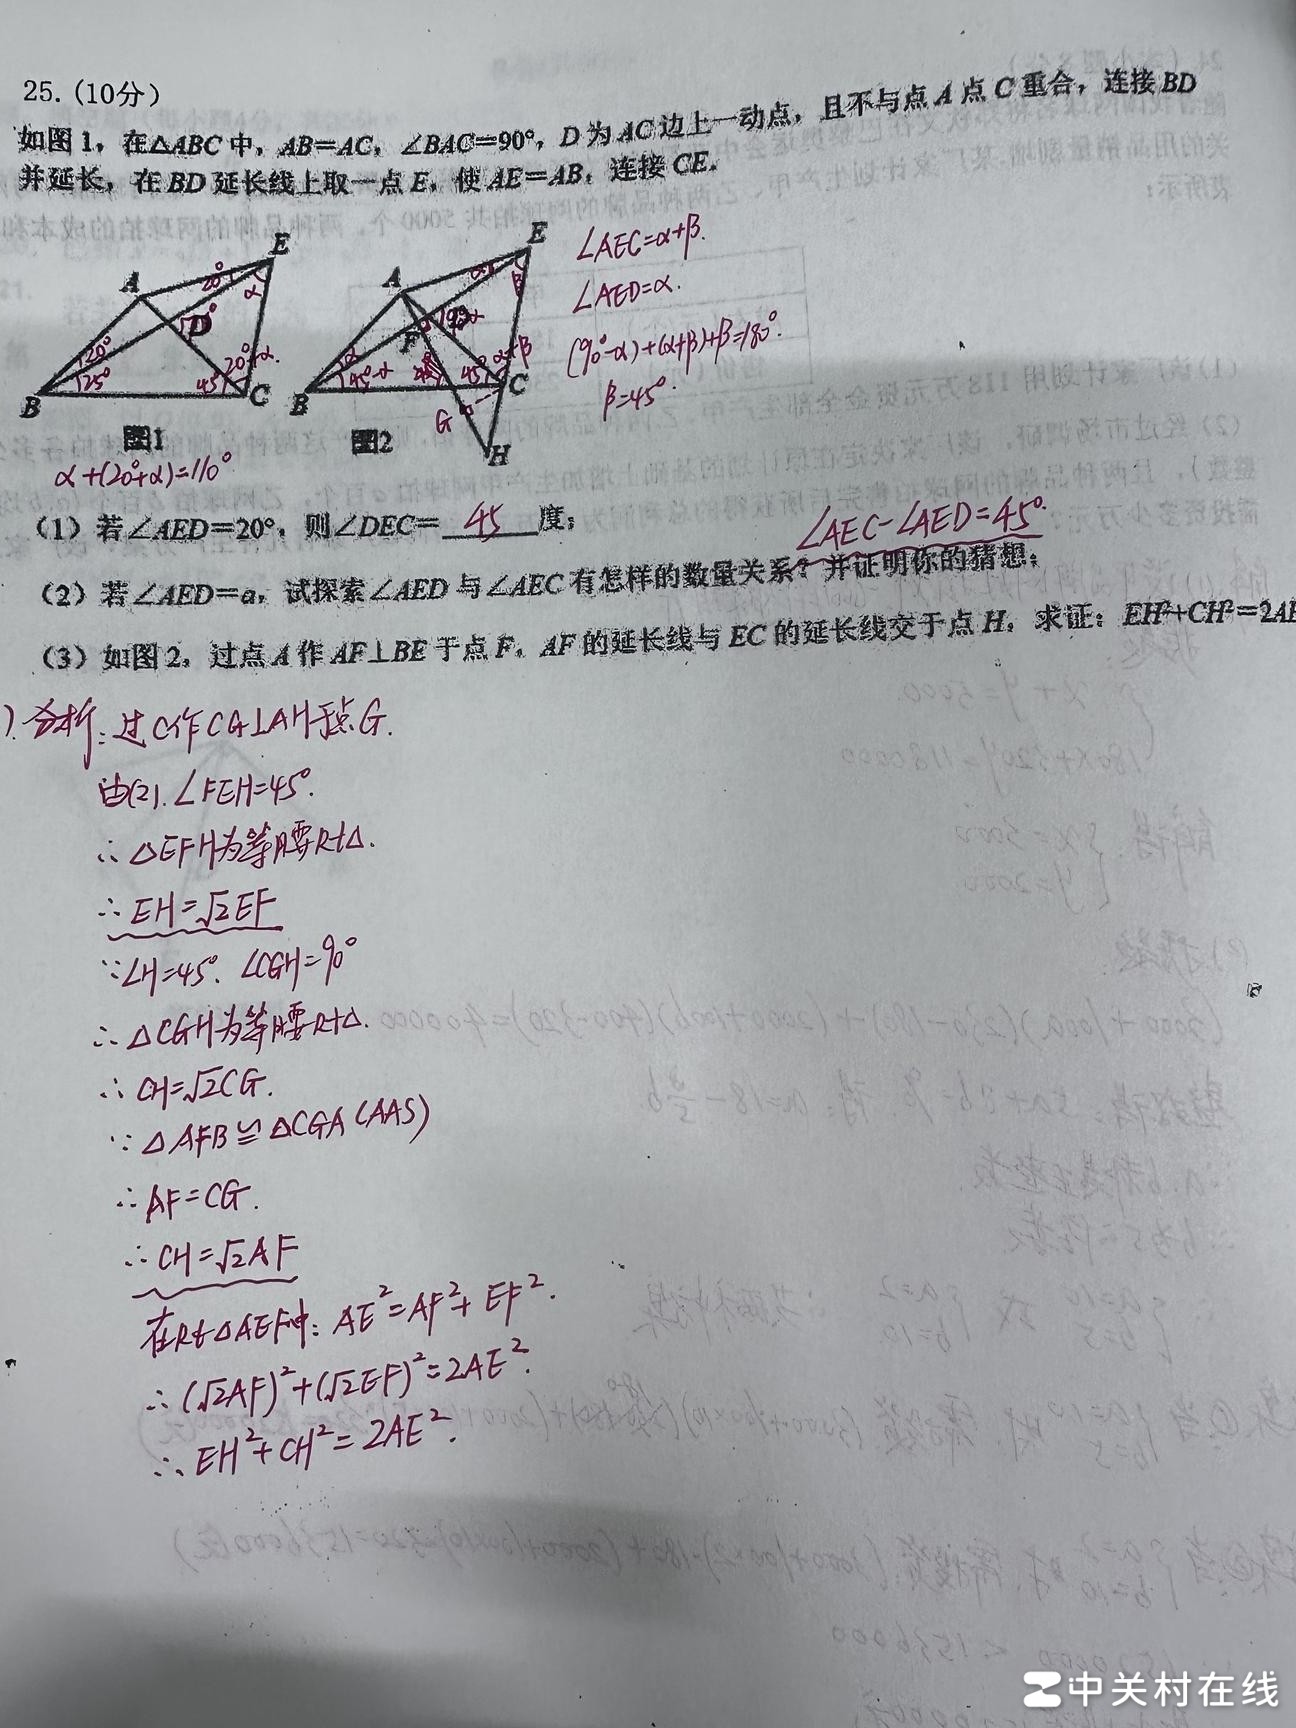 25. (10分)
如图1，在△ABC中，AB=AC，∠BAC=90°，D为AC边上一动点，且不与点A点C重合，连接BD
并延长，在BD延长线上取一点E，使AE=AB，连接CE.
∠AEC=α+β.
∠AED=α.
(90°-α)+(α+β)+β=180°.
β=45°
E
A
20°
α
D
20°
25°
45°
20°+α.
B
C
图1
E
A
α
β
F
α
45°-α
45°
α+β
B
C
G
H
图2
α+(20°+α)=110°
（1）若∠AED=20°，则∠DEC=45度；
∠AEC-∠AED=45°.
（2）若∠AED=a，试探索∠AED与∠AEC有怎样的数量关系？并证明你的猜想；
（3）如图2，过点A作AF⊥BE于点F，AF的延长线与EC的延长线交于点H，求证：EH²+CH²=2AE
) 分析：过C作CG⊥AH于点G.
由(2). ∠FEH=45°.
∴ △EFH为等腰Rt△.
∴ EH=√2EF
∵ ∠H=45°. ∠CGH=90°
∴ △CGH为等腰Rt△.
∴ CH=√2CG.
∵ △AFB≌△CGA (AAS)
∴ AF=CG.
∴ CH=√2AF
在Rt△AEF中：AE²=AF²+EF².
∴ (√2AF)²+(√2EF)²=2AE².
∴ EH²+CH²=2AE².
中关村在线